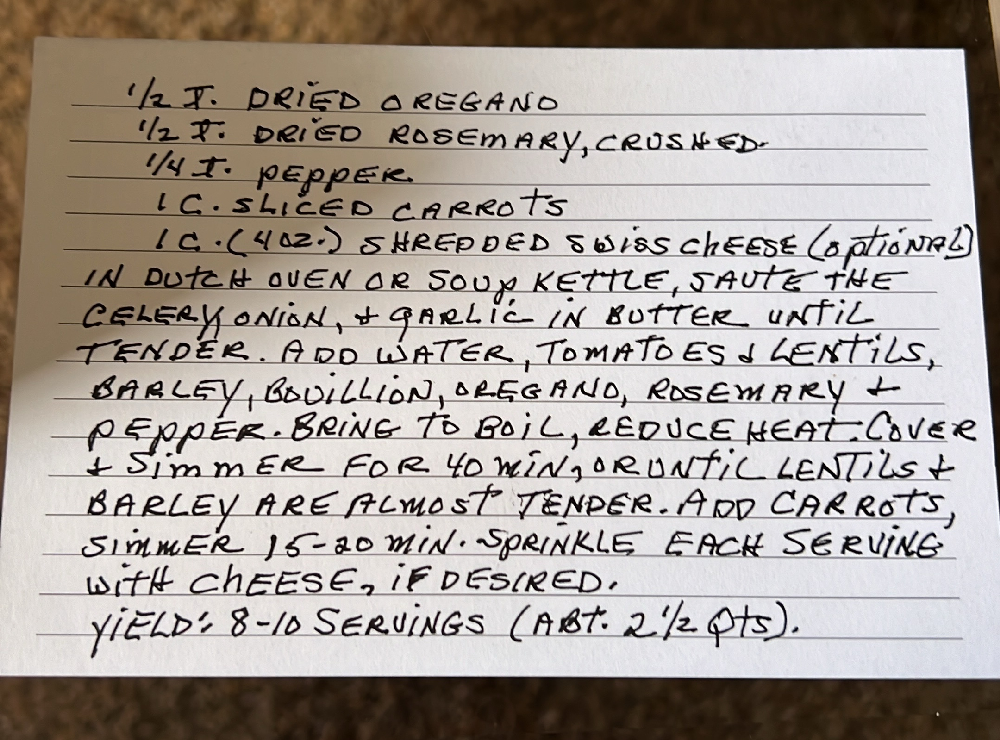 1/2 T. DRIED OREGANO
1/2 T. DRIED ROSEMARY, CRUSHED
1/4 T. PEPPER
1 C. SLICED CARROTS
1 C. (4 OZ.) SHREDDED SWISS CHEESE (OPTIONAL)
IN DUTCH OVEN OR SOUP KETTLE, SAUTE THE
CELERY ONION, & GARLIC IN BUTTER UNTIL
TENDER. ADD WATER, TOMATOES & LENTILS,
BARLEY, BOUILLION, OREGANO, ROSEMARY &
PEPPER. BRING TO BOIL, REDUCE HEAT. COVER
& SIMMER FOR 40 MIN, OR UNTIL LENTILS &
BARLEY ARE ALMOST TENDER. ADD CARROTS,
SIMMER 15-20 MIN. SPRINKLE EACH SERVING
WITH CHEESE, IF DESIRED.
YIELD: 8-10 SERVINGS (ABT. 2 1/2 QTS).